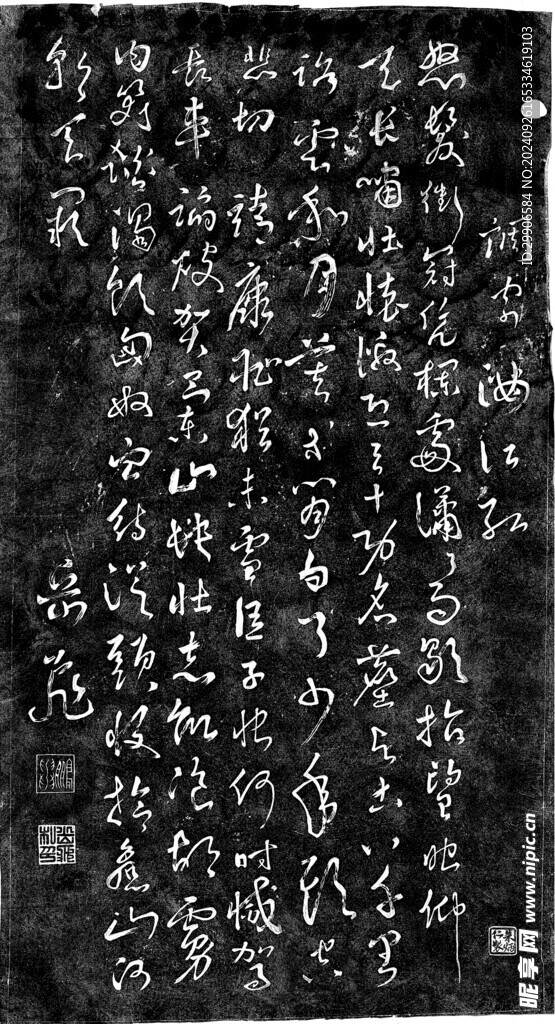 調寄 滿江紅
怒髮衝冠凭欄處瀟〻雨歇抬望眼仰
天長嘯壯懷激烈三十功名塵与土八千里
路雲和月莫等閒白了少年頭空
悲切 靖康恥猶未雪臣子恨何時滅駕
長車踏破賀蘭山缺壯志飢飡胡虜
肉笑談渴飲匈奴血待從頭收拾舊山河
朝天闕
岳飛
岳飛私印
ID:29906584 NO:20240926165334619103
昵享网 www.nipic.cn